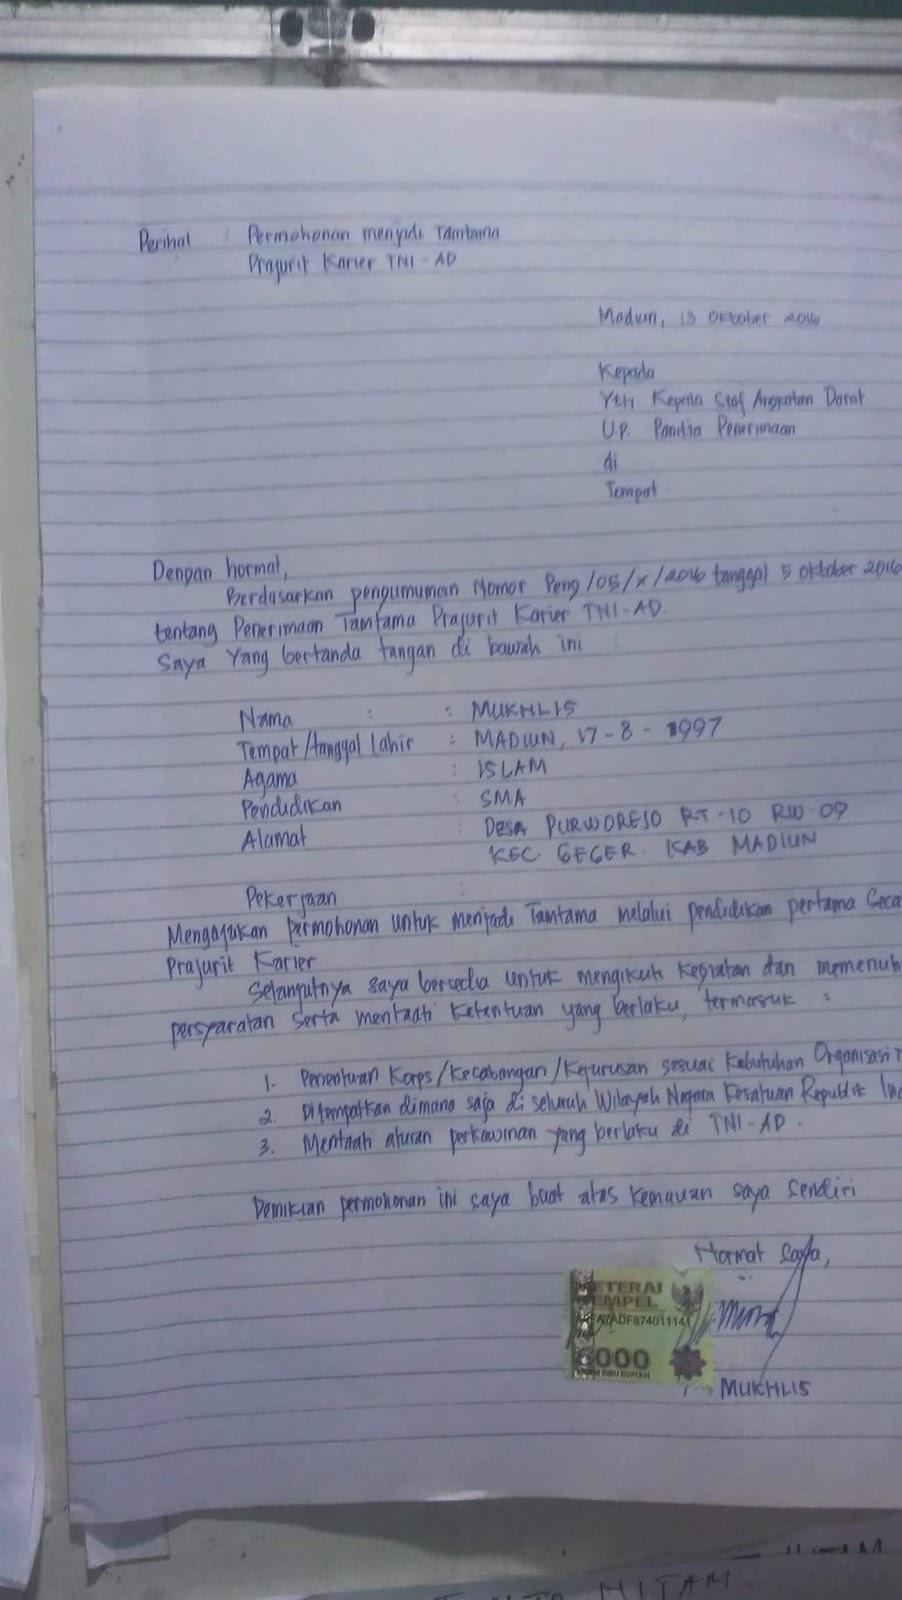 Perihal : Permohonan menjadi Tamtama
Prajurit Karier TNI-AD
Madiun, 13 Oktober 2016
Kepada
Yth Kepala Staf Angkatan Darat
U.P. Panitia Penerimaan
di
Tempat
Dengan hormat,
Berdasarkan pengumuman Nomor Peng/05/X/2016 tanggal 5 Oktober 2016
tentang Penerimaan Tamtama Prajurit Karier TNI-AD.
Saya Yang bertanda tangan di bawah ini :
Nama : : MUKHLIS
Tempat/tanggal lahir : MADIUN, 17-8-1997
Agama : ISLAM
Pendidikan : SMA
Alamat : DESA PURWOREJO RT.10 RW 09
KEC. GEGER. KAB MADIUN
Pekerjaan :
Mengajukan permohonan untuk menjadi Tamtama melalui pendidikan pertama Seca
Prajurit Karier
Selanjutnya saya bersedia untuk mengikuti kegiatan dan memenuh
persyaratan serta mentaati ketentuan yang berlaku, termasuk :
1. Penentuan Korps/Kecabangan/Kejurusan sesuai Kebutuhan Organisasi T
2. Ditempatkan dimana saja di seluruh Wilayah Negara Kesatuan Republik Ind
3. Mentaati aturan perkawinan yang berlaku di TNI-AD.
Demikian permohonan ini saya buat atas kemauan saya sendiri
Hormat saya,
METERAI
TEMPEL
ADF874011141
6000
ENAM RIBU RUPIAH
MUKHLIS
HITAM